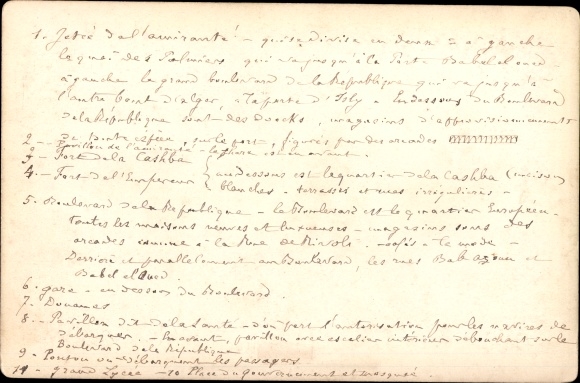 1. Jetée de l'amirauté - qui se divise en deux à gauche
le quai des Palmiers qui va jusqu'à la Porte Babelouec
à gauche le grand boulevard de la République qui va jusqu'à
l'autre bout d'alger, à la porte d'Isly. En dessous du Boulevard
de la République sont des docks, magasins d'approvisionnements
de toute espèce, sur le port, figurés par des arcades
2 - Pavillon de l'amirauté - le phare est en avant.
3 - Fort de la Cashba
4. - Fort de l'Empereur { au dessous est le quartier de la Cashba (maisons)
blanches - terrasses et rues irrégulières -
5. Boulevard de la République - le Boulevard est le quartier Européen -
toutes les maisons neuves et luxueuses - magasins sous des
arcades comme à la Rue de Rivoli - cafés à la mode -
Derrière et parallèlement au Boulevard, les rues Bab azoun et
Bab el Oued.
6. gare - en dessous du Boulevard.
7 - Douanes
8. - Pavillon dit de la Santé - d'où part l'autorisation pour les navires de
débarquer. - En avant, pavillon avec escalier intérieur débouchant sur le
Boulevard de la République
9 - Ponton où débarquent les passagers
11 - grand Lycée - 10 Place du Gouvernement et mosquée